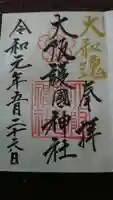 大和魂
奉拝
大阪護國神社
令和元年五月二十六日